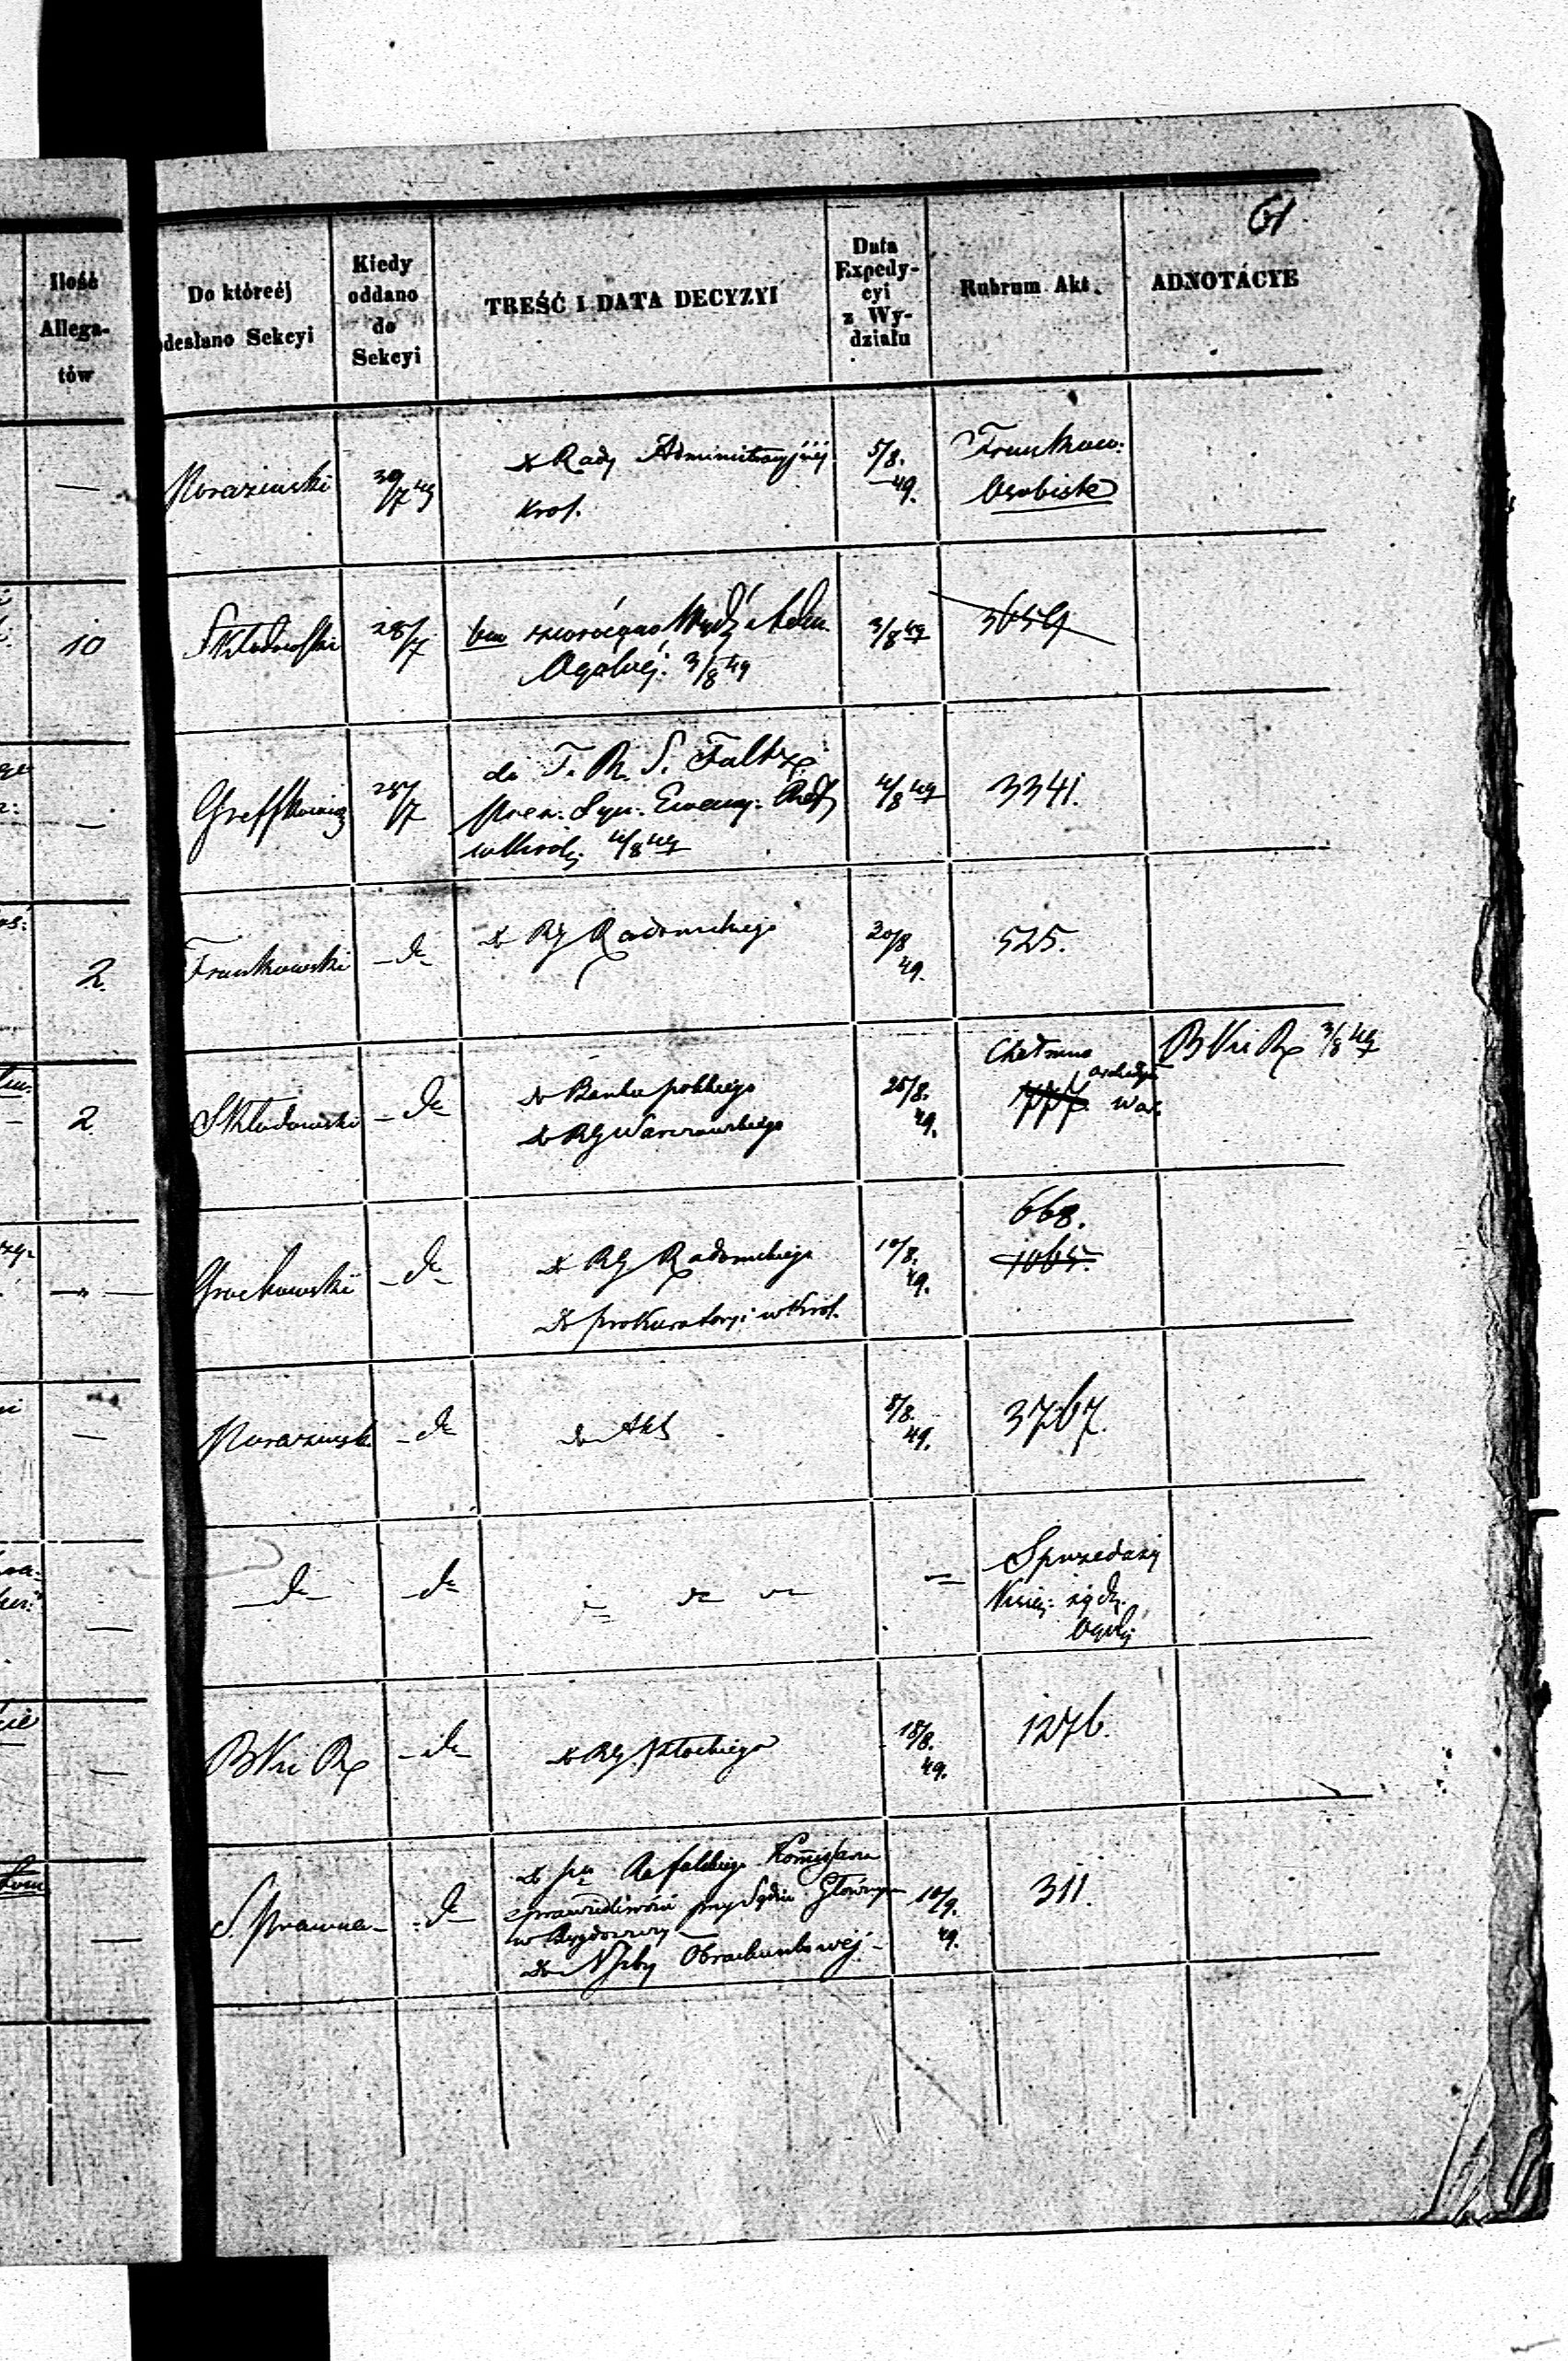 61
Ilość
Allega-
tów
Do któréj
odesłano Sekcyi
Kiedy
oddano
do
Sekcyi
TREŚĆ I DATA DECYZYI
Data
Expedy-
cyi
z Wy-
działu
Rubrum Akt.
ADNOTACYE
—
30/7 49
do Rady Administracyjnéj
Król.
5/8.
49.
Frankow:
Osobiste
10
Skłodowski
28/7
Ogólnéj. 3/8 49
3/8 49
3659
—
28/7
do
4/8 49
4/8 49
3341.
2.
Frankowski
- do -
do RG Radomskiego
20/8
49.
525.
2.
Skłodowski
- do
do Banku polskiego
do RG Warszawskiego
25/8.
49.
Chełmno
B K i R 3/8 49
—
Grochowski
- do -
do RG Radomskiego
do prokuratoryi w Król.
10/8.
49.
668.
1065.
—
- do
do Akt
8/8.
49.
3767.
—
- do -
- do
Sprzedaży
Ogóln
—
B K i R
- do -
do RG. Płockiego
18/8.
49.
1276.
—
S. Prawna
- do -
do
sprawiedliwości przy Sądzie Głównym
w Bydgoszczy
do N Izby Obrachunkowéj
10/9.
49.
311.